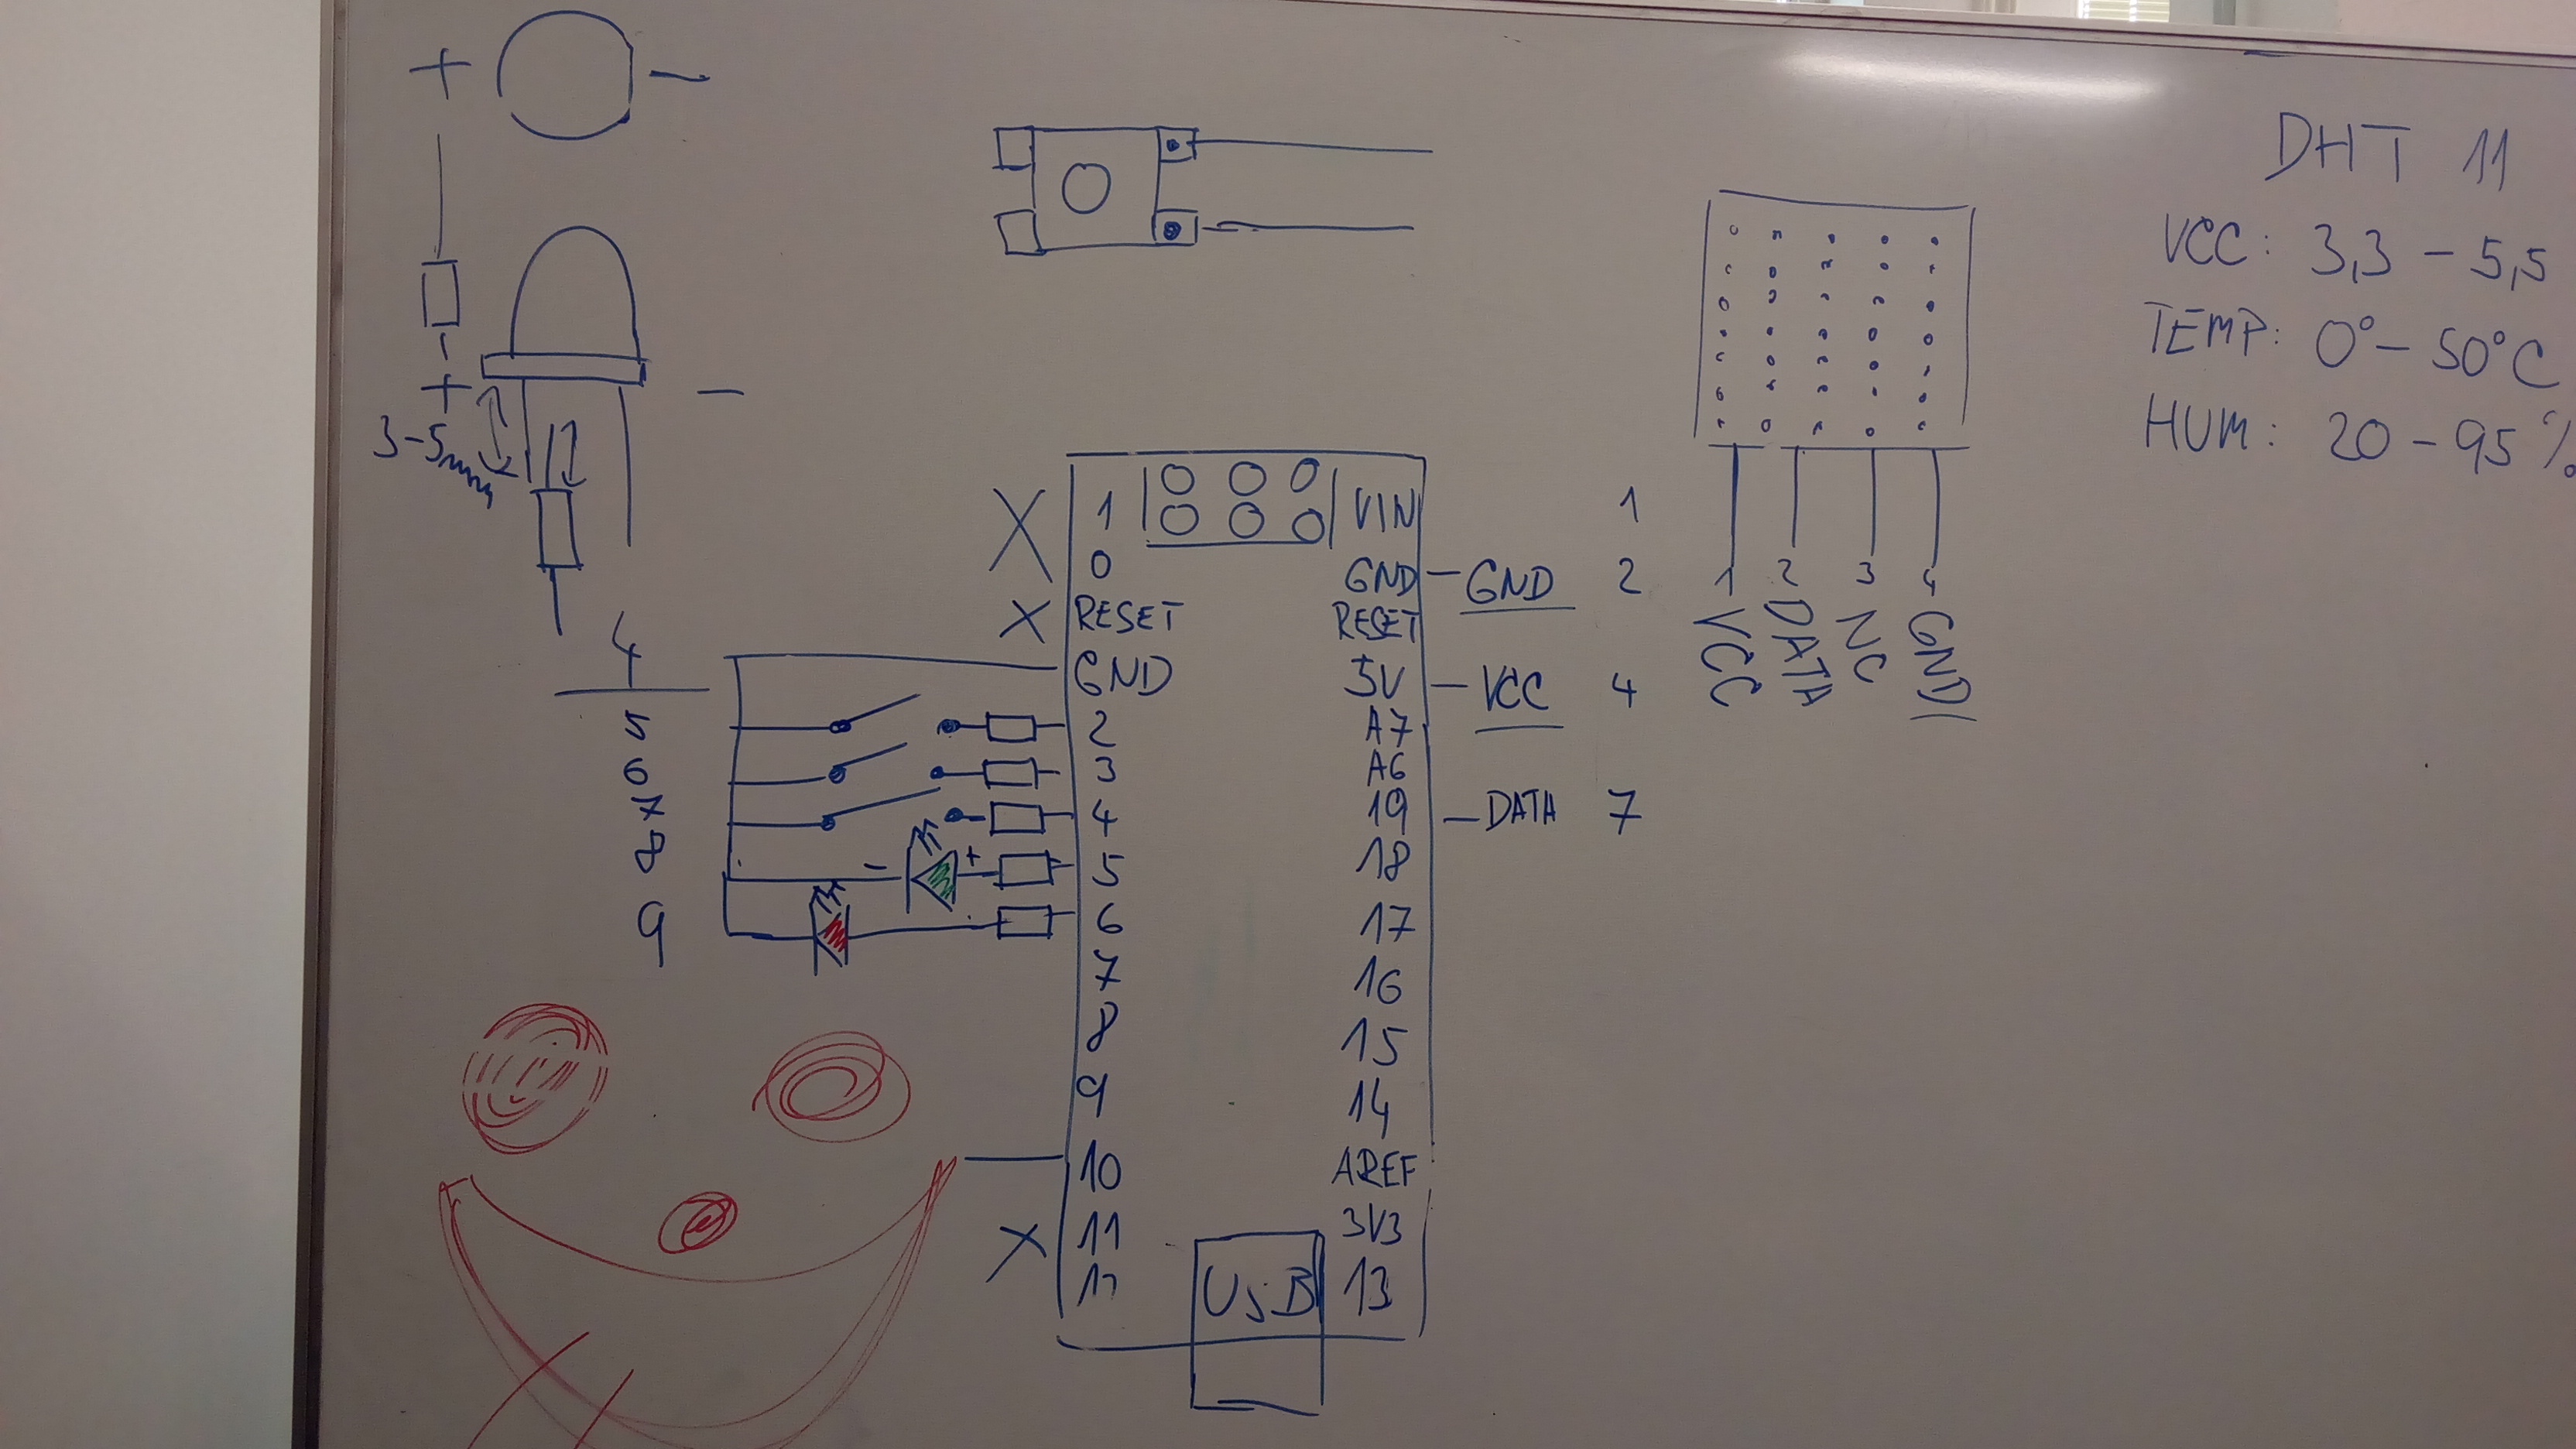 + -
+ -
3-5mm
4
5
6
7
8
9
- +
X 1 VIN 1
0 GND - GND 2
X RESET RESET
GND 5V - VCC 4
2 A7
3 A6
4 19 - DATA 7
5 18
6 17
7 16
8 15
9 14
10 AREF
X 11 3V3
13
USB
1 2 3 4
VCC DATA NC GND
DHT 11
VCC: 3,3 - 5,5
TEMP: 0° - 50°C
HUM: 20 - 95 %